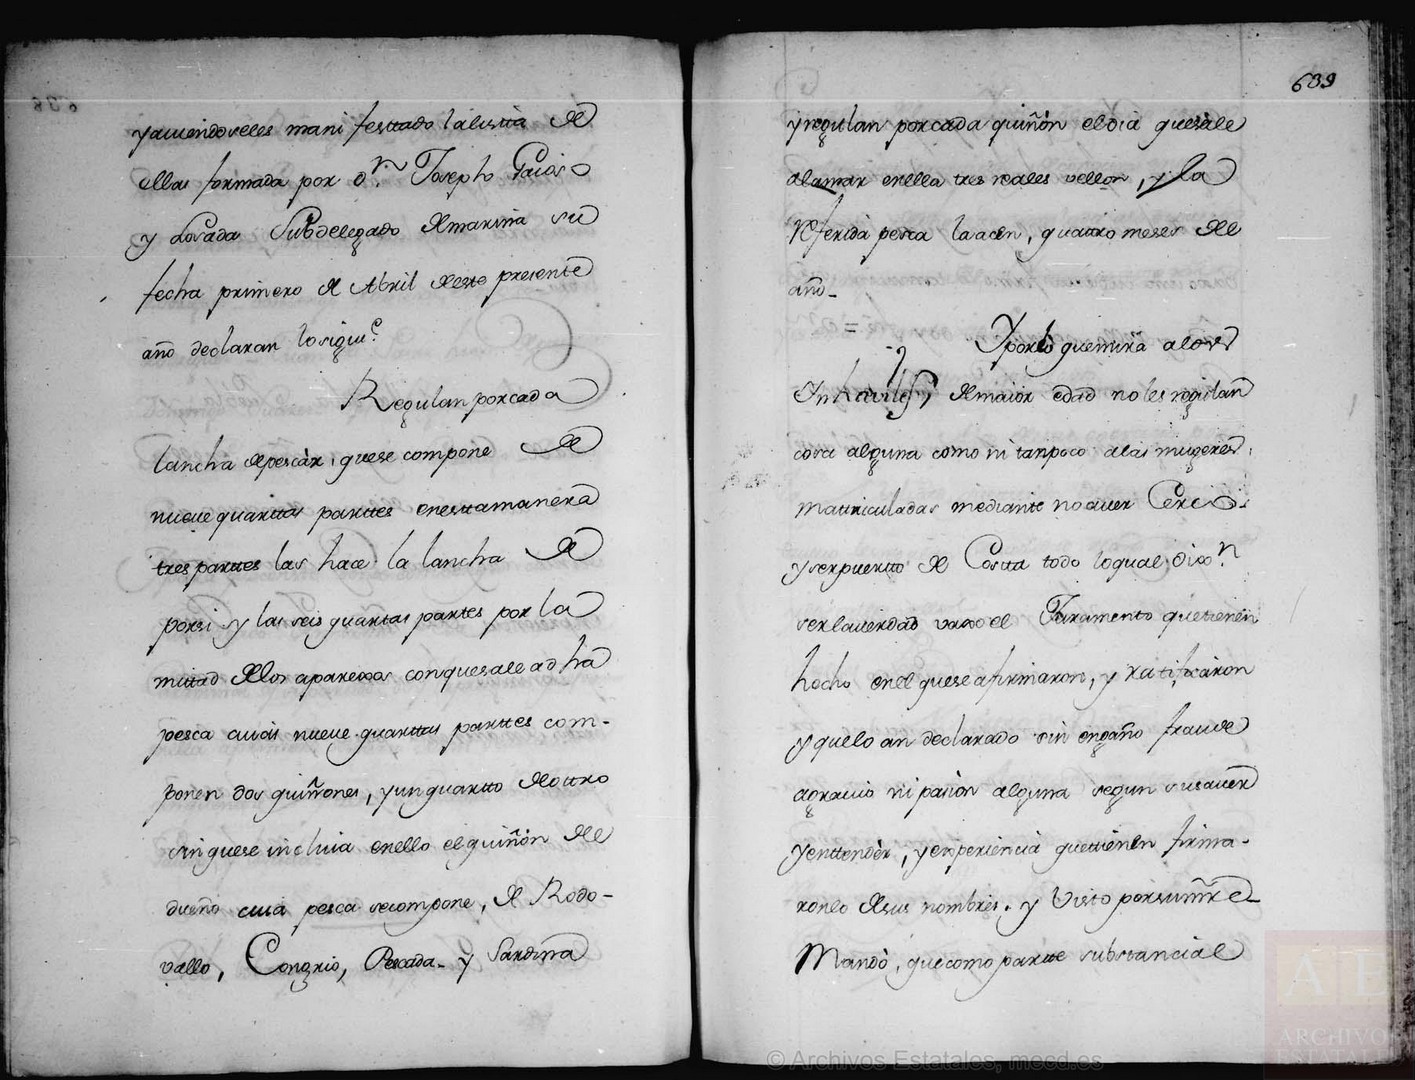 yauiendoseles manifesttado la listta de
ellas formada por Dn. Joseph Paios
y Losada Subdelegado de marina su
fecha primero de Abril de este presente
año declaran lo siguite.
Regulan por cada
lancha de pescàr, que se compone de
nueve quarttas parttes en esttamanera
tres parttes las hace la lancha de
porsi y las seis quarttas partes por la
mittad de los aparexos con que sale ad ha
pesca cuias nueve quarttas parttes com-
ponen dos quiñones, y un quartto de ottro
sin que se incluia en ello el quiñòn del
dueño cuia pesca se compone, de Rodo-
vallo, Congrio, Pescada- y Sardina
639
y regulan por cada quiñòn el dia que sàle
àlamar en ella tres reales vellon, y la
referida pesca la acen, quattro meses del
año-
=
Y por lo que mira a los
Inhaviles, de maior edad no les regulan
cosa alguna como ni tanpoco a las mugeres
matriculadas mediante no auer
y ser puertto de Costta todo lo qual dixn.
ser la uerdad vaxo el Juramento que tienen
hecho en el que se afirmaron, y ratificaron
y que lo an declarado sin engaño fraude
agrauio ni pasion alguna segun su sauer
y enttendèr, y experiencia que ttienen firma-
ronlo de sus nombres. y Visto por su mrd
Mandò, que como partte substancial
© Archivos Estatales, mecd.es
AE
ARCHIVOS
ESTATALES